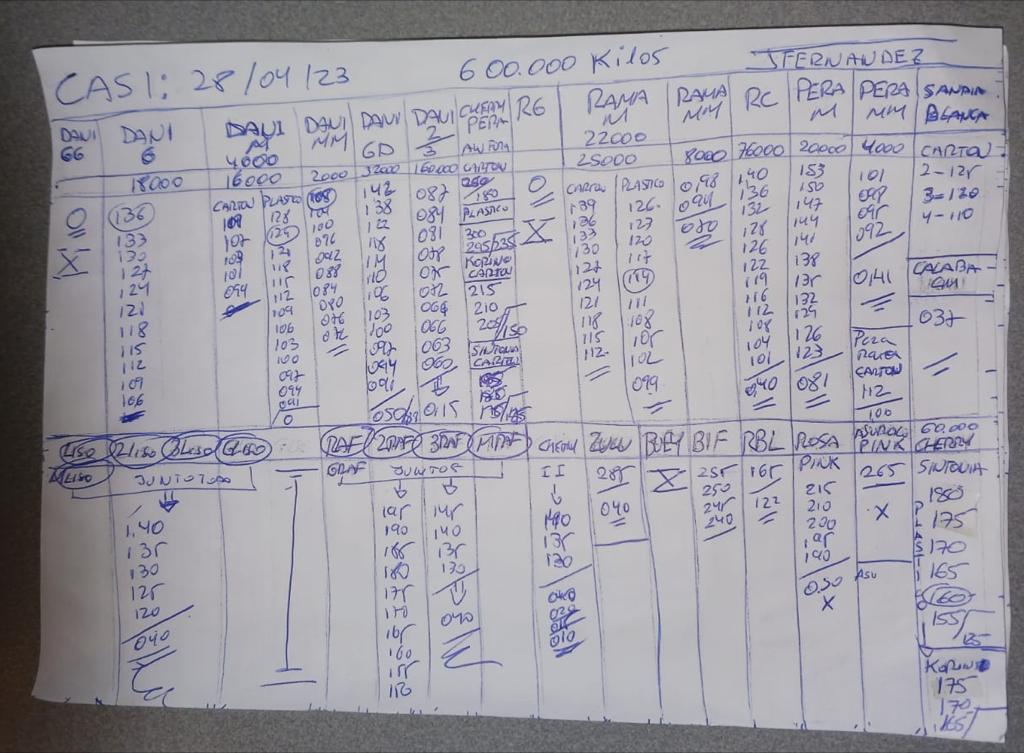 CASI: 28/04/23 600.000 Kilos JFERNANDEZ
DANI GG
0
X
DANI G
18000
136
133
130
127
124
121
118
115
112
109
106
DANI M
4000
16000
CARTON
109
107
103
101
094
PLASTICO
128
124
121
118
115
112
109
106
103
100
097
094
091
0
DANI MM
2000
108
104
100
096
092
088
084
080
076
072
DANI GD
32000
142
138
122
118
114
110
106
103
100
097
094
091
050/
DANI 2/3
160000
087
084
081
078
075
072
069
066
063
060
015
CHERRY PERA
CARTON
180
PLASTICO
300
295/235
KORINO
CARTON
215
210
205/150
SINTONIA
CARTON
RG
0
X
RAMA M
22000
25000
CARTON
139
136
133
130
127
124
121
118
115
112
PLASTICO
126
123
120
117
114
111
108
105
102
099
RAMA MM
8000
098
094
070
RC
76000
140
136
132
128
126
122
119
116
112
108
104
101
040
PERA M
20000
153
150
147
144
141
138
135
132
129
126
123
081
PERA MM
4000
101
098
095
092
0,41
Pera
Rama
CARTON
112
100
SANDIA
BLANCA
CARTON
2-125
3-120
4-110
CALABA-
CIN
037
LISO 2LISO 3LISO GLISO
MLISO JUNTO TODO
1,40
135
130
125
120
040
RAF 2RAF 3RAF MRAF
GRAF JUNTOS
195
190
185
180
175
170
165
160
155
150
145
140
135
130
040
CHERRY
II
140
135
130
010
ZULU
285
040
BUEY
X
BIF
255
250
245
240
RBL
165
122
ROSA
PINK
215
210
200
195
190
0,50
X
PINK
265
X
ASU
60.000
CHERRY
SINTONIA
PLASTICO
180
175
170
165
160
155/
125
KORINO
175
170
165/